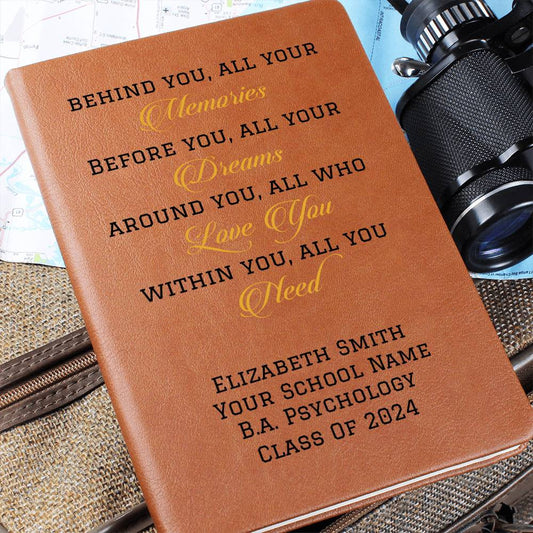 BEHIND YOU, ALL YOUR
Memories
BEFORE YOU, ALL YOUR
Dreams
AROUND YOU, ALL WHO
Love You
WITHIN YOU, ALL YOU
Need
ELIZABETH SMITH
YOUR SCHOOL NAME
B.A. PSYCHOLOGY
CLASS OF 2024